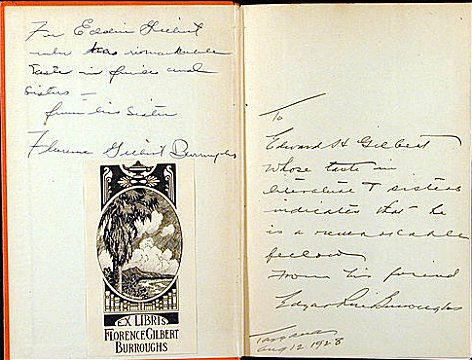 For Eddie Gilbert
who has remarkable
taste in and
sisters —
from his sister
Florence Gilbert Burroughs
EX LIBRIS
FLORENCE GILBERT
BURROUGHS
To
Edward H Gilbert
Whose taste in
literature & sisters
indicates that he
is a remarkable
fellow
From his friend
Edgar Rice Burroughs
Tarzana
Aug 12 1928